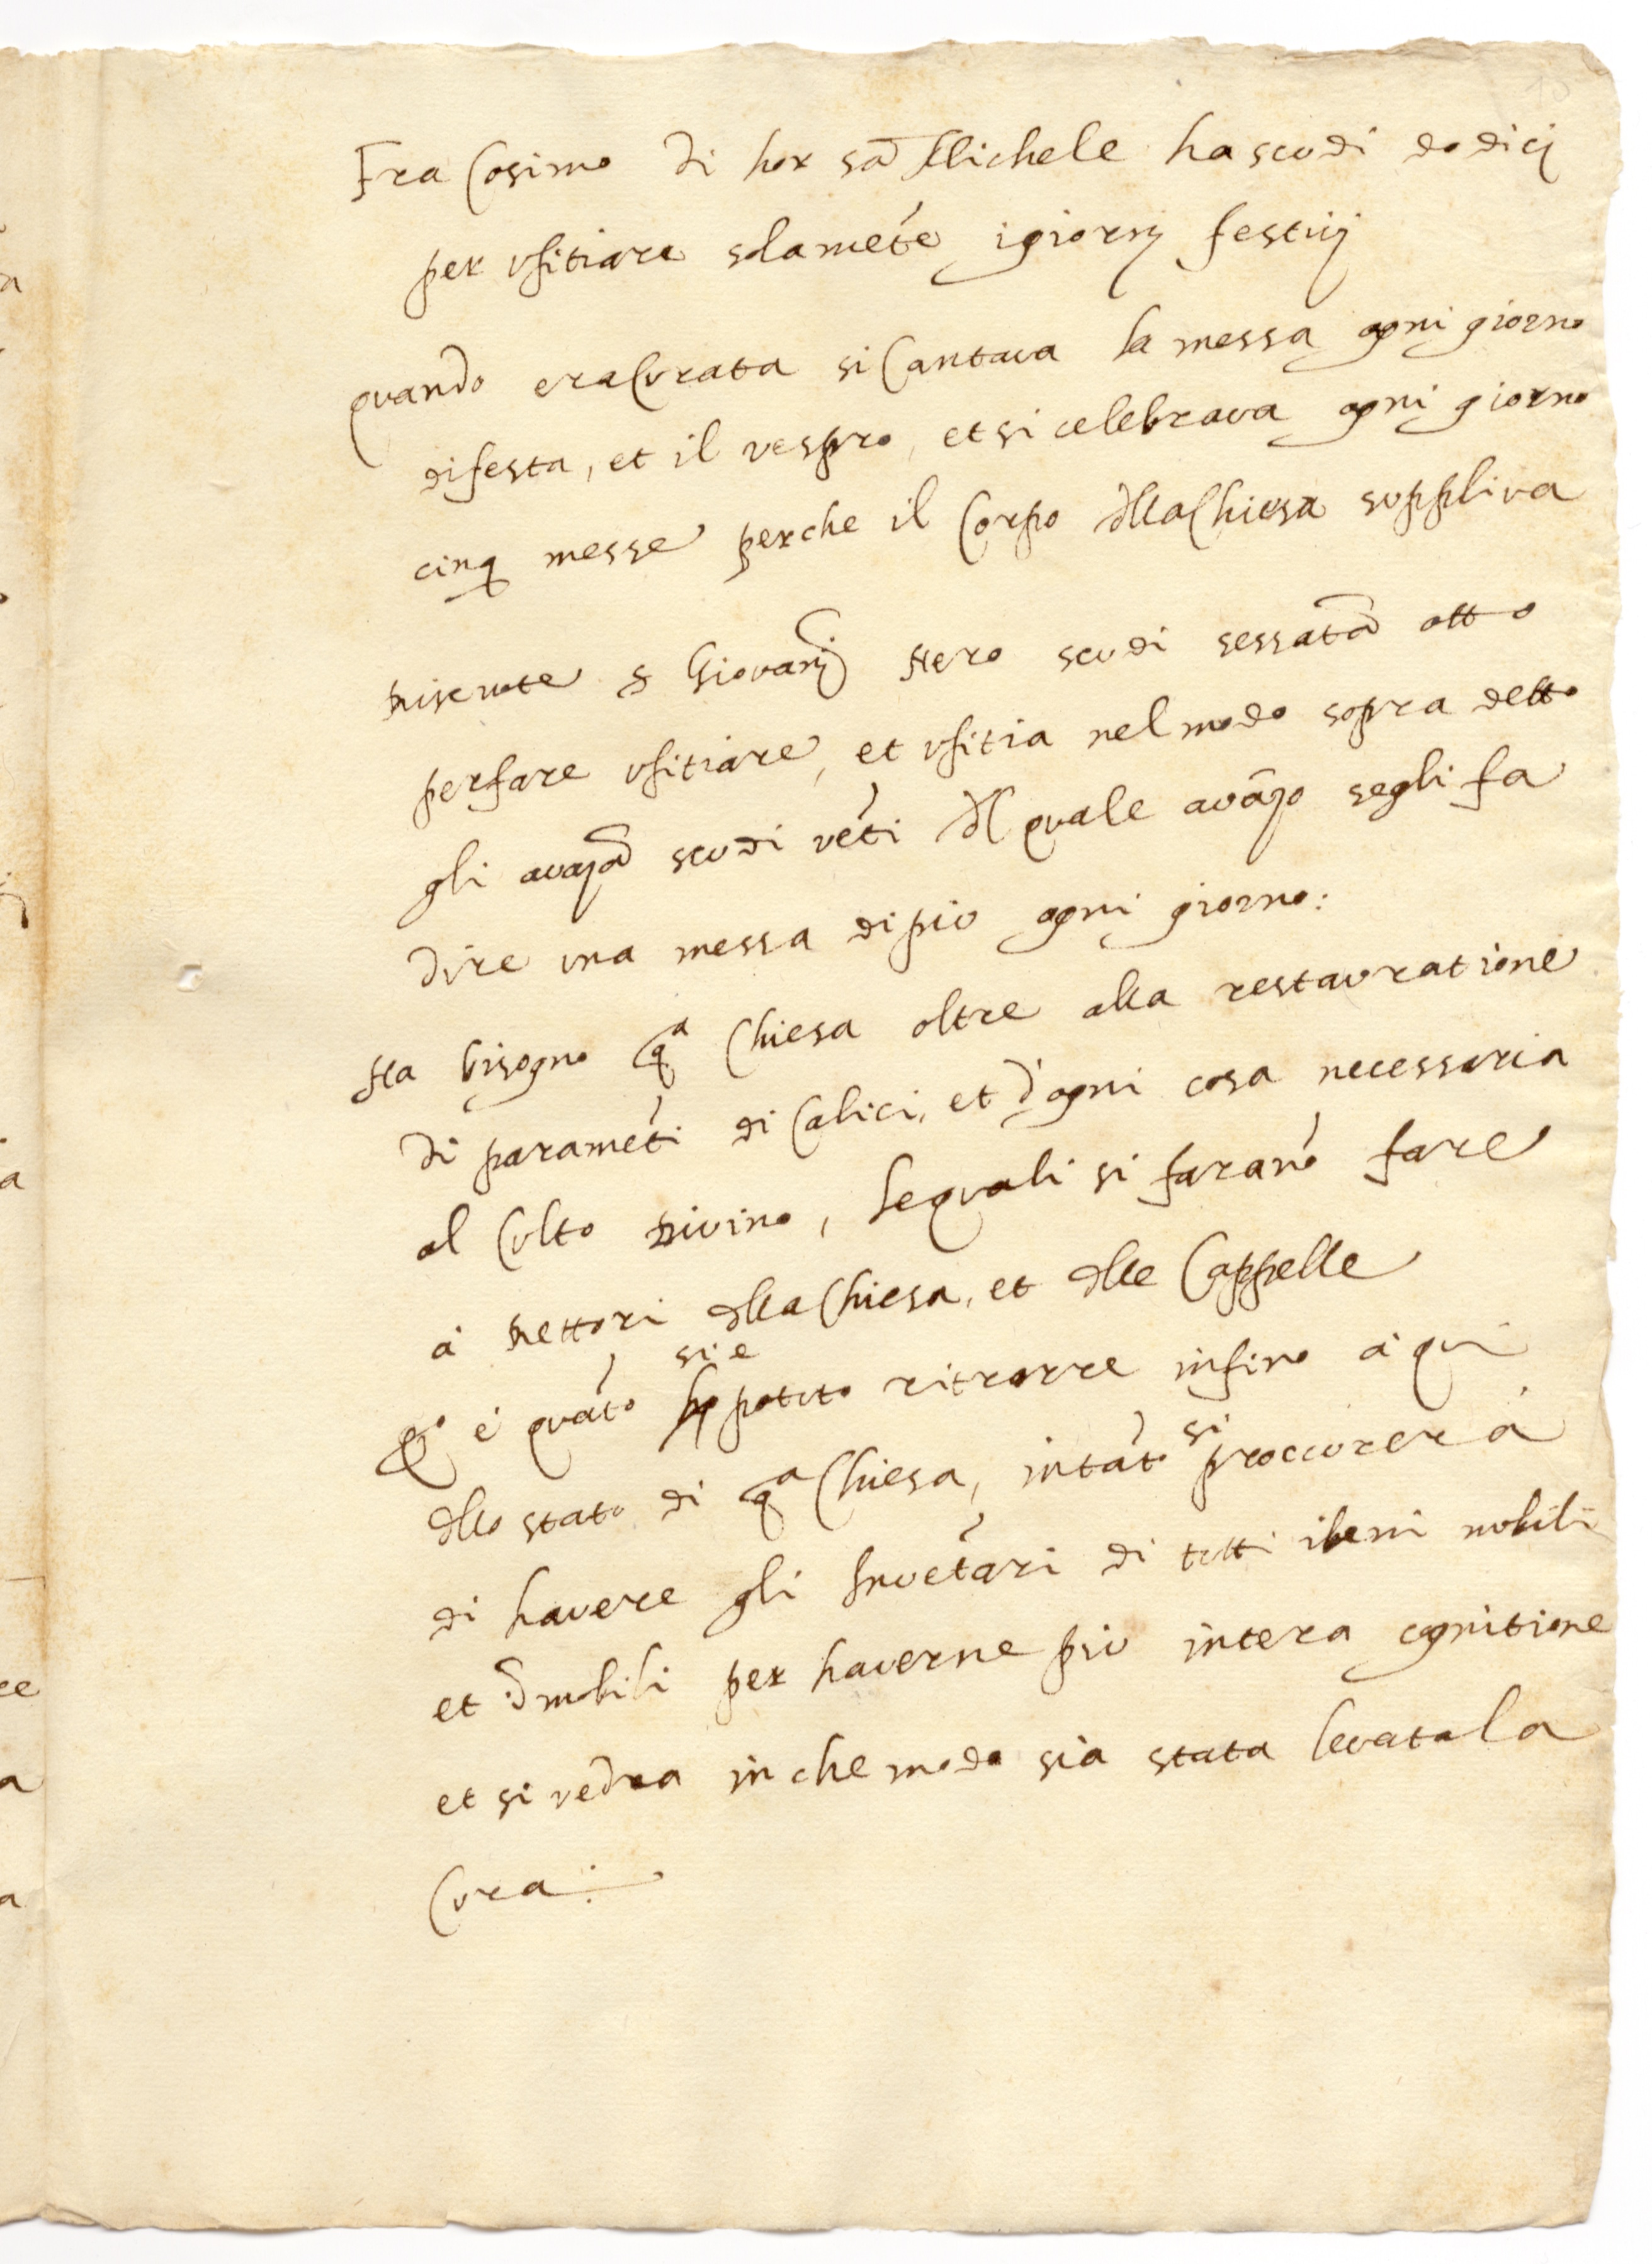 Fra Cosimo di hor sā Michele ha scudi dodicj
per ufitiare solamēte i giornj festivj
quando era Curata si Cantava la messa ogni giorno
di festa, et il vespro, et si celebrava ogni giorno
cinq messe perche il Corpo dlla Chiesa suppliva
Riscuote Giovānj Nero scudi sessātā otto
per fare ufitiare, et ufitia nel modo sopra detto
gli avāzā scudi vēti dl quale avāzo se gli fa
dire una messa di piu ogni giorno:
Ha bisogno qᵃ Chiesa oltre alla restauratione
di paramēti di Calici, et d'ogni cosa necessaria
al Culto Divino, le quali si farāno fare
à Rettori dlla Chiesa, et dlle Cappelle
qº è quāto si è potuto ritrarre infino à qui
dllo stato di qᵃ Chiesa, intāto si proccurerà
di havere gli Invētari di tutti i beni mobili
et īmobili per haverne piu intera cognitione
et si vedra in che modo sia stata levata la
Cura: